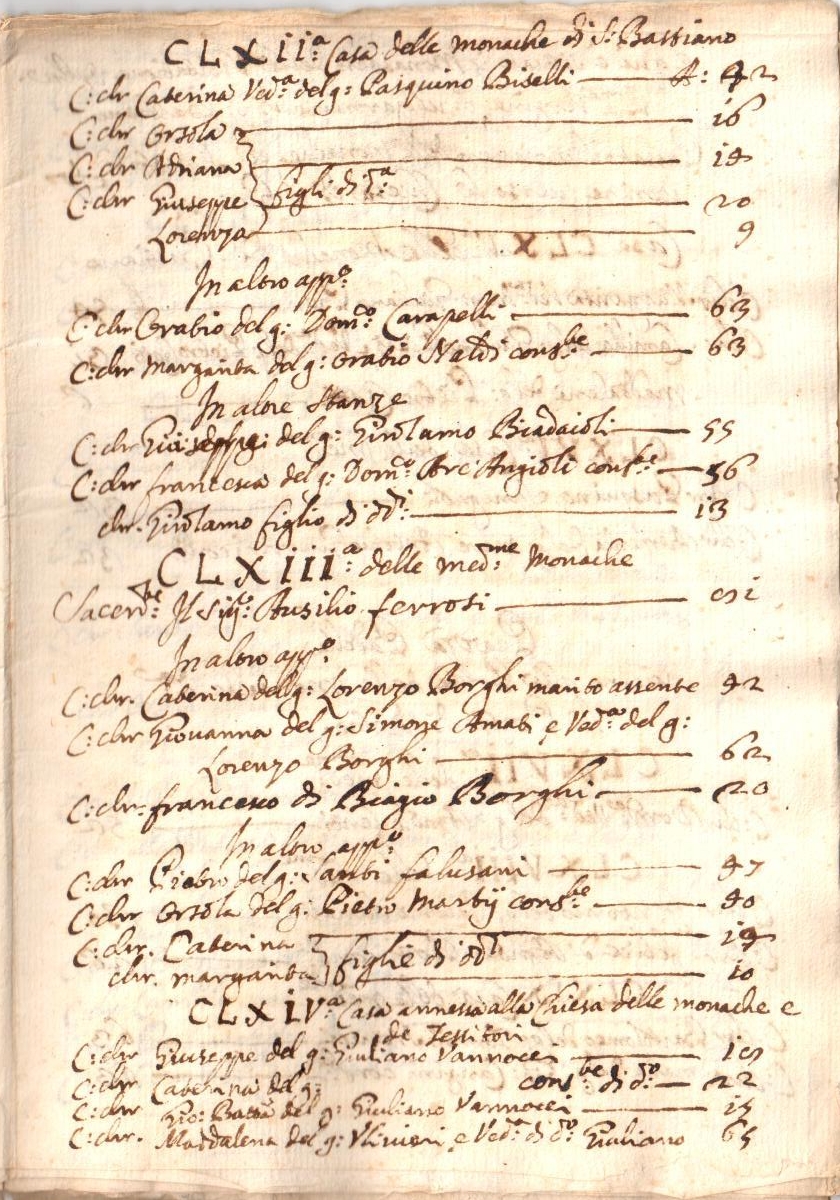 CLXII:ª Casa delle Monache di S: Bastiano
C: chr Caterina Ved:ª del q: Pasquino Biselli — A: 42
C: chr Orsola — 16
C: chr Adriana — 14
C: chr Giuseppe figli di d:ª — 20
Lorenzo — 9
In altro app:º
C: chr Oratio del q: Dom:º Carapelli — 63
C: chr Margarita del q: Oratio Naldi cons:be — 63
In altre Stanze
C: chr Giuseppe del q: Girolamo Biadaioli — 55
C: chr francesca del q: Dom:º Arc Angioli cons:e — 56
chr. Girolamo figlio di dd:i — 13
CLXIII:ª delle med:me Monache
Sacerd:te Il Sig:r Ausilio ferrosi
In altro app:º
C: chr. Caterina del q: Lorenzo Borghi marito assente 42
C: chr Giovanna del q: Simone Amati e Ved:ª del q:
Lorenzo Borghi — 62
C: chr. francesco di Biagio Borghi — 20
In altro app:º
C: chr Pietro del q: Santi falusani — 47
C: chr Orsola del q: Pietro Martij cons:be — 40
C: chr. Caterina — 14
chr. margarita figlie di dd:i — 10
CLXIV:ª Casa annessa alla Chiesa delle monache e
de Tessitori
C: chr Giuseppe del q: Giuliano Vannocci
C: chr Caterina del q: cons:be di d:º — 22
C: chr Gio: Batta del q: Giuliano Vannocci — 15
C: chr. Maddalena del q: Ulivieri e Ved:ª di d:º Giuliano 65